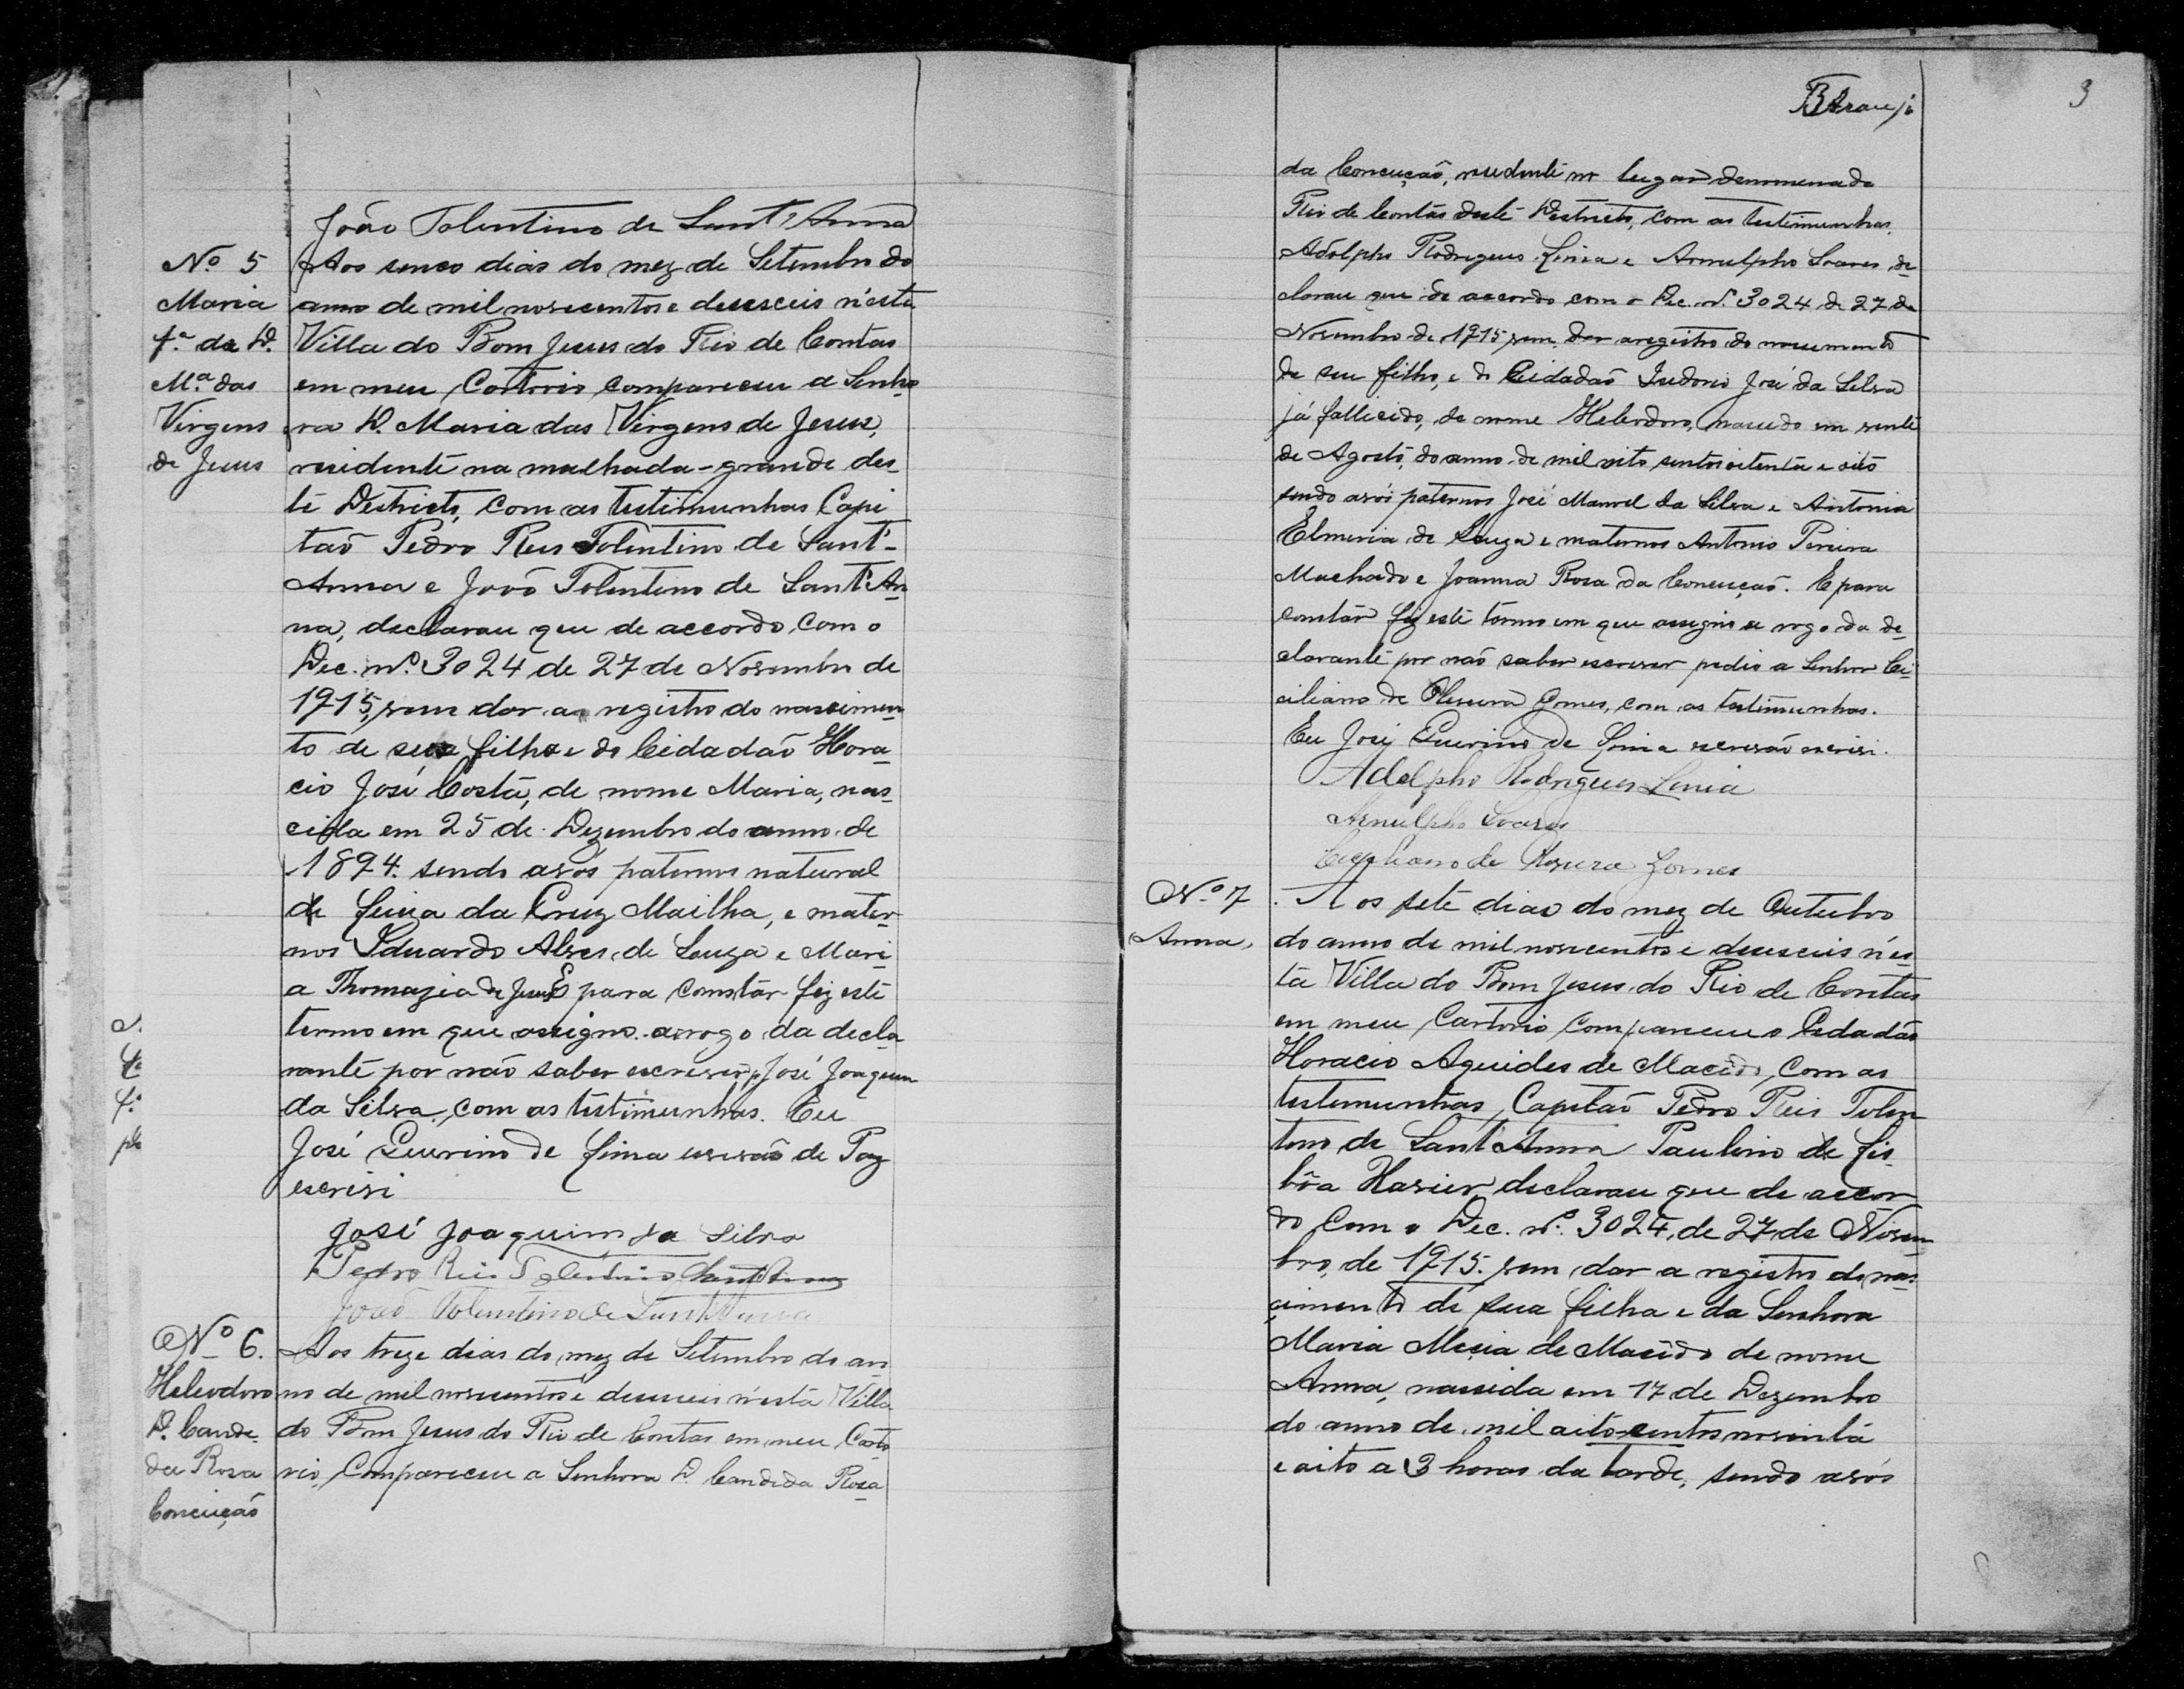 João Tolentino de Sant'Anna
Nº 5
Maria
fª de D.
Mª das
Virgens
de Jesus
Aos sinco dias do mez de Setembro do
anno de mil novecentos e deseseis n'esta
Villa do Bom Jesus do Rio de Contas
em meu Cartorio compareceu a Senho-
ra D. Maria das Virgens de Jesus,
residente na malhada-grande des-
te Destricto, com as testimunhas Capi
tão Pedro Reis Tolentino de Sant'-
Anna e João Tolentino de Sant'An-
na, declarau que de accordo com o
Dec. nº 3024 de 27 de Novembro de
1915, vem dar a registro do nascimen-
to de sua filha e do Cidadão Hora-
cio José Costa, de nome Maria, nas-
cida em 25 de Dezembro do anno de
1894. sendo avós paternos natural
de da Cruz Mailha, e mater-
nos Eduardo Alves de Souza e Mari-
a Thomazia de Jesus E para constar fiz este
termo em que assigna arrogo da decla
rante por não saber escrever José Joaquim
da Silva, com as testimunhas. Eu
José Guerino de Lima escrivão de Paz
escrivi
José Joaquim da Silva
Pedro Reis Tolentino Sant'Anna
João Tolentino de Sant'Anna
Nº 6.
Heleodoro
D. Cande-
da Rosa
Conceição
Aos treze dias do mez de Setembro do an
no de mil novecentos e deseseis n'esta Villa
do Bom Jesus do Rio de Contas em meu Carto
rio, Compareceu a Senhora D. Candida Rosa
3
BAraujo
da Conceição, residente no lugar denomenado
Rio de Contas deste Destricto, com as testimunhas.
Adolpho Rodrigues Lima e Arnulpho Soares, de-
clarau que de accordo com o Dec. nº 3024 de 27 de
Novembro de 1915, vem dar a registro do nascimento
de seu filho, e do Cidadão Isidorio José da Silva
já fallicido, de nome Heleodoro, nascido em vente
de Agosto, do anno de mil oito sentos oitenta e oito
sendo avós paternos José Manoel da Silva e Antonia
Elmeria de Souza e maternos Antonio Pereira
Machado e Joanna Rosa da Conceição. E para
constar fiz este termo em que assigna a rogo da de-
clarante por não saber escrever pedio a Senhor Ci-
ciliano de Oliveira Gomes, com as testimunhas.
Eu José Guerino de Lima escrivão escrivi.
Adolpho Rodrigues Lima
Arnulpho Soares
de Oliveira Gomes
Nº 7
Anna,
Aos sete dias do mez de Outubro
do anno de mil novecentos e deseseis n'es-
ta Villa do Bom Jesus do Rio de Contas
em meu Cartorio compareceu o Cidadão
Horacio Aguides de Macedo, com as
testemunhas, Capitão Pedro Reis Tolen
tino de Sant'Anna Paulino de Lis-
bôa Havier declarau que de accor
do com o Dec. nº 3024, de 27 de Novem-
bro, de 1915. vem dar a registro do nas-
cimento de sua filha e da Senhora
Maria Mecia de Macêdo de nome
Anna, nassida em 17 de Dezembro
do anno de mil oito-centos noventa
e oito a 3 horas da tarde, sendo avós